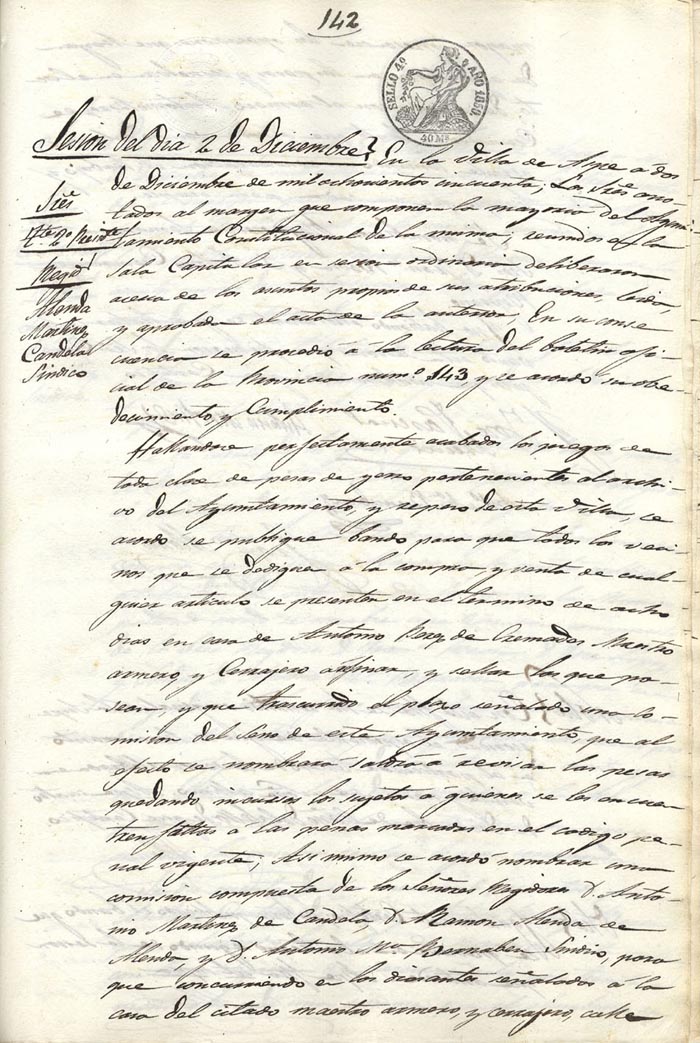 142
SELLO 4º AÑO 1850.
40 Ms.
Sesion del dia 2 de Diciembre
Sres
Tte. 2º Presidte
Regid.
Alenda
Martinez
Candela
Sindico
En la Villa de Aspe a dos
de Diciembre de mil ochocientos cincuenta; Los Sres ano-
tados al margen que componen la mayoria del Ayun-
tamiento Constitucional de la misma, reunidos en la
sala Capitular en sesion ordinaria deliberaron
acerca de los asuntos propios de sus atribuciones, leida,
y aprobada el acta de la anterior, En su conse
cuencia se procedió á la lectura del boletin ofi-
cial de la Provincia num.º 143 y se acordo su obe-
decimiento y Cumplimiento.
Hallandose perfectamente acabados los juegos de
toda clase de pesas de yerro pertenecientes al archi-
vo del Ayuntamiento, y repeso de esta Villa, se
acordo se publique bando para que todos los veci-
nos que se dedique á la compra y venta de cual-
quier articulo se presenten en el termino de ocho
dias en casa de Antonio Perez de Cremades Maestro
armero, y Cerrajero a afinar, y sellar las que po-
sean, y que trascurrido el plazo señalado una co-
mision del Seno de este Ayuntamiento, que al
efecto se nombrara saldrá a revisar las pesas
quedando incursos los sujetos á quienes se les encuen
tren faltas a las penas marcadas en el codigo pe-
nal vigente; Asi mismo se acordó nombrar una
comision compuesta de los Señores Regidores D. Anto-
nio Martinez de Candela, D. Ramon Alenda de
Alenda, y D. Antonio Mª Bernabeu Sindico, para
que concurriendo en los dias antes señalados a la
casa del citado maestro armero, y cerrajero, calle